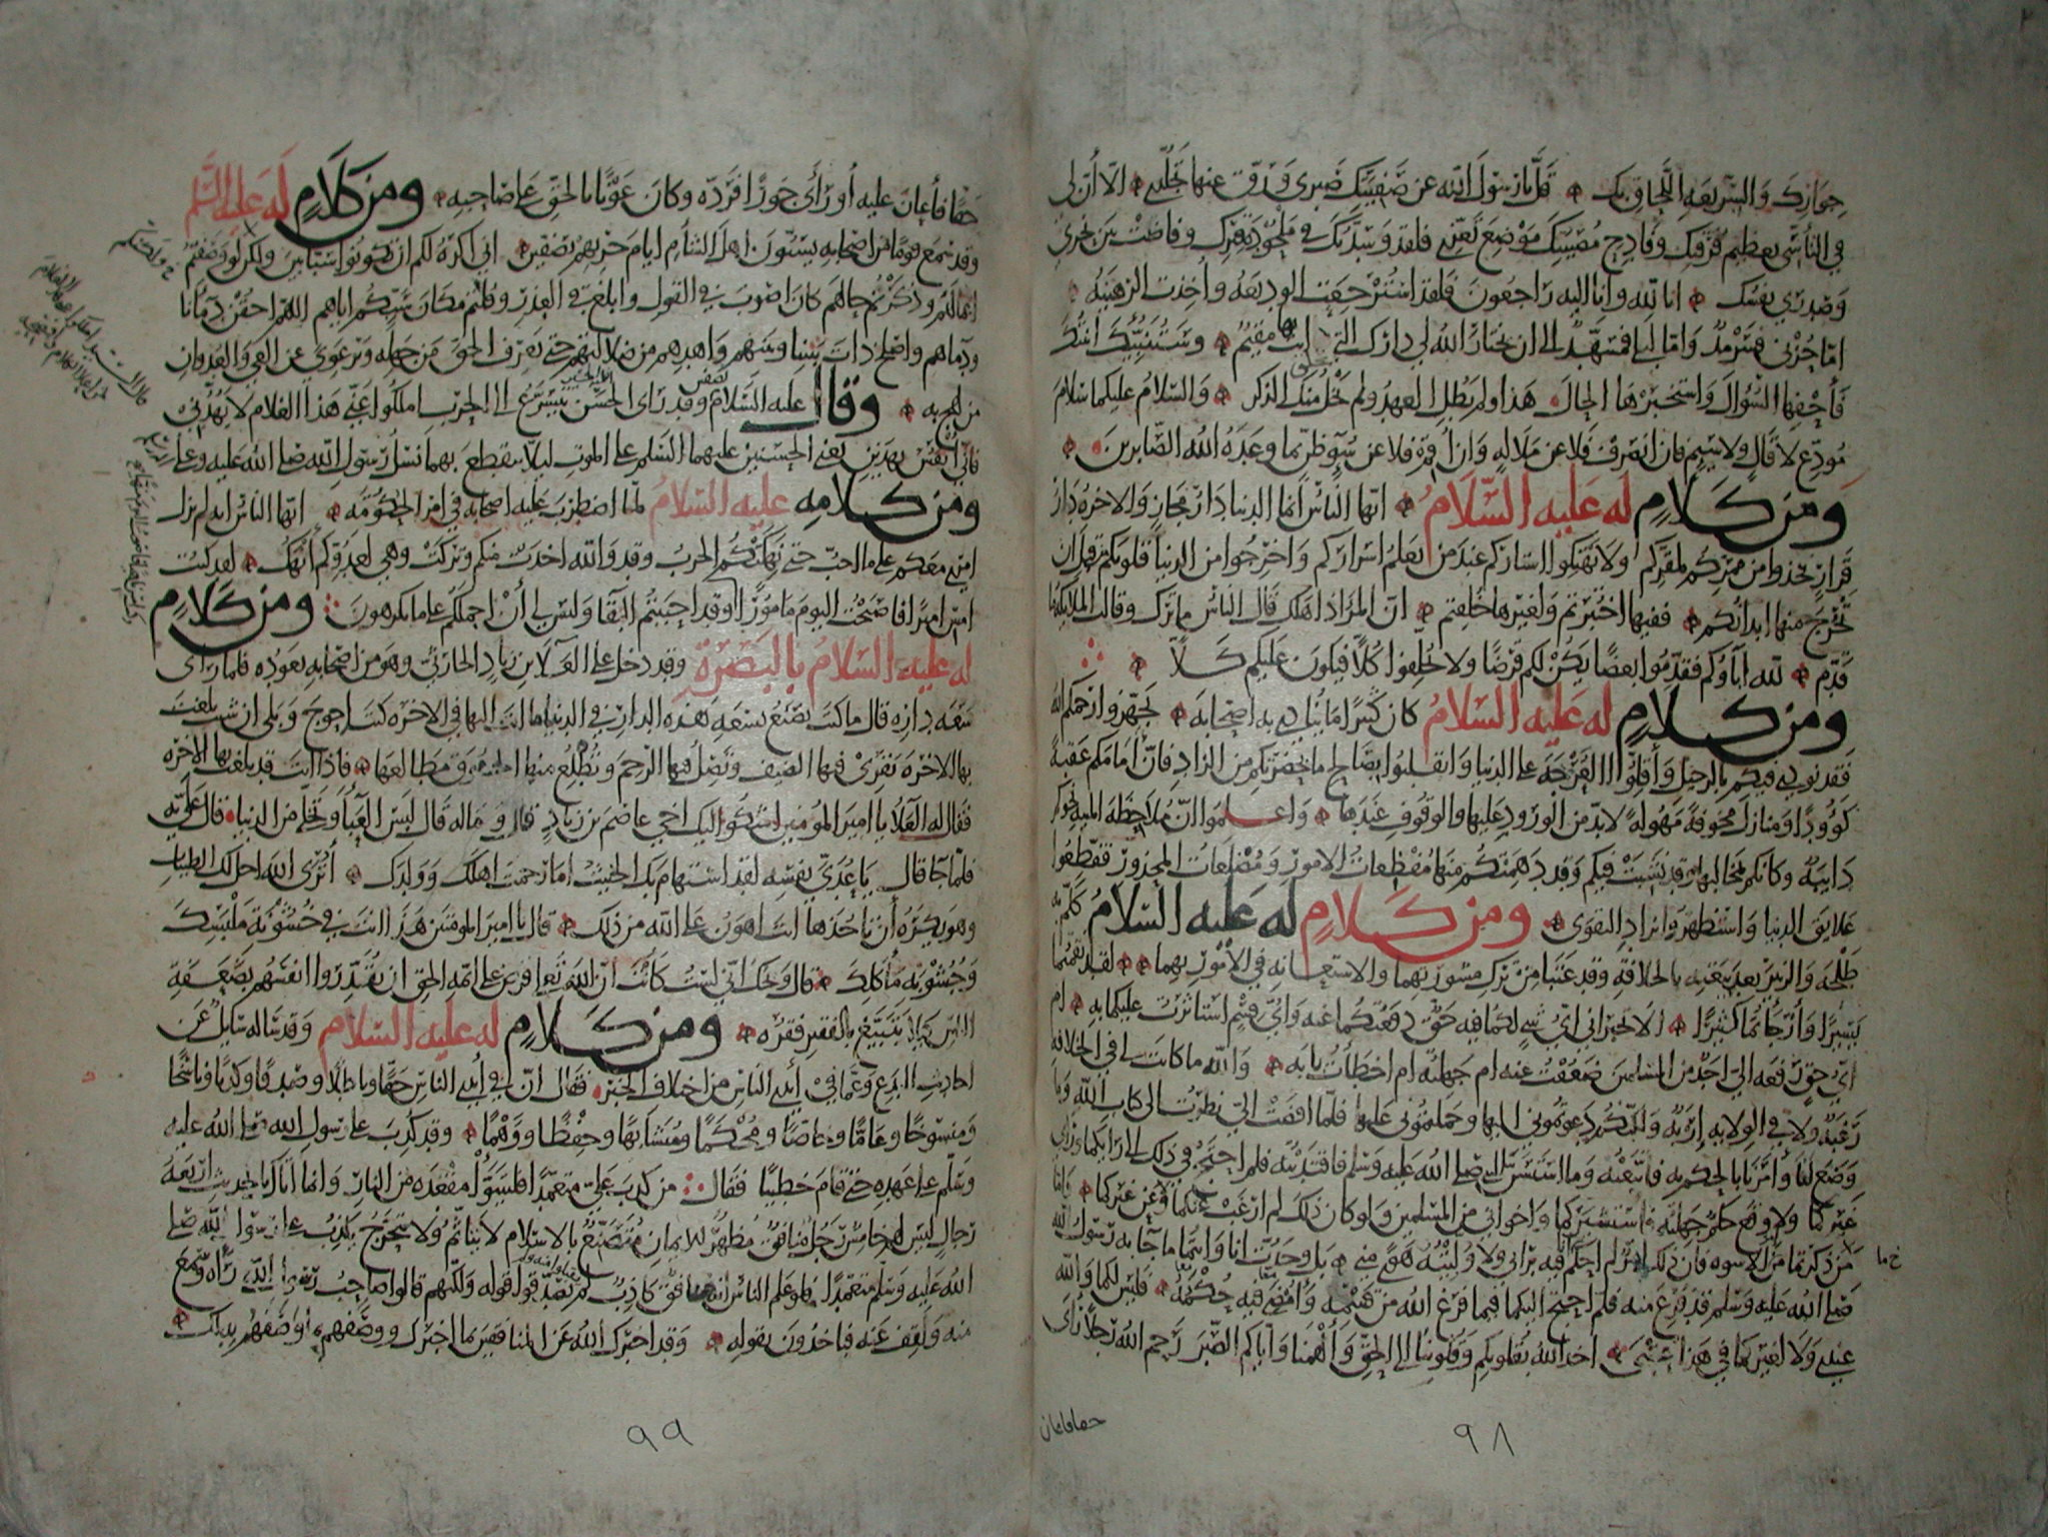 جوارك والسريعه اللحاق بك قل يا رسول الله عن صفيتك صبري ورق عنها تجلدي الا ان لي
في التأسي بعظيم فرقتك وفادح مصيبتك موضع تعز فلقد وسدتك في ملحودة قبرك وفاضت بين نحري
وصدري نفسك انا لله وانا اليه راجعون فلقد استرجعت الوديعه واخذت الرهينه
اما حزني فسرمد واما ليلي فمسهد الى ان يختار الله لي دارك التي انت بها مقيم وستنبئك ابنتك
فأحفها السؤال واستخبرها الحال هذا ولم يطل العهد ولم يخل منك الذكر والسلام عليكما سلام
مودع لا قال ولا سيم فان انصرف فلا عن ملالة وان اقم فلا عن سوء ظن بما وعد الله الصابرين
ومن كلام له عليه السلام ايها الناس انما الدنيا دار مجاز والاخره دار
قرار فخذوا من ممركم لمقركم ولا تهتكوا استاركم عند من يعلم اسراركم واخرجوا من الدنيا قلوبكم قبل ان
تخرج منها ابدانكم ففيها اختبرتم ولغيرها خلقتم ان المرء اذا هلك قال الناس ما ترك وقالت الملائكة ما
قدم لله آباؤكم فقدموا بعضا يكن لكم قرضا ولا تخلفوا كلا فيكون عليكم كلا
ومن كلام له عليه السلام كان كثيرا ما ينادي به اصحابه تجهزوا رحمكم الله
فقد نودي فيكم بالرحيل وأقلوا العرجة على الدنيا وانقلبوا بصالح ما بحضرتكم من الزاد فان امامكم عقبة
كؤودا ومنازل مخوفة مهولة لا بد من الورود عليها والوقوف عندها واعلموا ان ملاحظ المنية نحوكم
دانية وكانكم بمخالبها وقد نشبت فيكم وقد دهمتكم منها مفظعات الامور ومضلعات المحذور فقطعوا
علايق الدنيا واستظهروا بزاد التقوى ومن كلام له عليه السلام كلم به
طلحة والزبير بعد بيعته بالخلافة وقد عتبا من ترك مشورتهما والاستعانة في الأمور بهما لقد نقمتما
يسيرا وأرجأتما كثيرا ألا تخبراني اي شيء لكما فيه حق دفعتكما عنه واي قسم استأثرت عليكما به ام
اي حق رفعه الي احد من المسلمين ضعفت عنه ام جهلته ام اخطأت بابه والله ما كانت لي في الخلافة
رغبة ولا في الولاية إربة ولكنكم دعوتموني اليها وحملتموني عليها فلما افضت الي نظرت الى كتاب الله وما
وضع لنا وأمرنا بالحكم به فاتبعته وما استسن النبي صلى الله عليه وسلم فاقتديته فلم احتج في ذلك الى رايكما ولا راي
غيركما ولا وقع حكم جهلته فاستشيركما واخواني من المسلمين ولو كان ذلك لم ارغب عنكما ولا عن غيركما واما
ما ذكرتما من الاسوه فان ذلك امر لم احكم فيه برأيي ولا وليته هوى مني بل وجدت انا وانتما ما جاء به رسول الله
صلى الله عليه وسلم قد فرغ منه فلم احتج اليكما فيما فرغ الله من قسمه وأمضى فيه حكمه فليس لكما والله
عندي ولا لغيركما في هذا عتبى اخذ الله بقلوبكم وقلوبنا الى الحق وألهمنا واياكم الصبر رحم الله رجلا رأى
حقا فاعان
٩٨
حقا فأعان عليه أو رأى جورا فرده وكان عونا بالحق على صاحبه ومن كلام له عليه السلم
وقد سمع قوما من اصحابه يسبون اهل الشام ايام حربهم بصفين اني اكره لكم ان تكونوا سبابين ولكن لو وصفتم
اعمالهم وذكرتم حالهم كان اصوب في القول وابلغ في العذر وقلتم مكان سبكم اياهم اللهم احقن دماءنا
ودماءهم واصلح ذات بيننا وبينهم واهدهم من ضلالتهم حتى يعرف الحق من جهله ويرعوي عن الغي والعدوان
من لهج به وقال عليه السلام وقد رأى الحسن يتسرع الى الحرب املكوا عني هذا الغلام لا يهدني
فاني أنفس بهذين يعني الحسنين عليهما السلم على الموت ليلا ينقطع بهما نسل رسول الله صلى الله عليه وعلى
ومن كلامه عليه السلام لما اضطرب عليه اصحابه في امر الحكومة ايها الناس انه لم يزل
امري معكم على ما احب حتى نهكتكم الحرب وقد والله اخذت منكم وتركت وهي لعدوكم أنهك لقد كنت
امس اميرا فاصبحت اليوم مامورا وقد احببتم البقا وليس لي أن احملكم على ما تكرهون ومن كلام
له عليه السلام بالبصرة وقد دخل على العلاء بن زياد الحارثي وهو من اصحابه يعوده فلما رأى
سعة داره قال ما كنت تصنع بسعة هذه الدار في الدنيا اما انت اليها في الاخره كنت احوج وبلى ان شئت بلغت
بها الاخره تقري فيها الضيف وتصل فيها الرحم وتطلع منها الحقوق مطالعها فاذا انت قد بلغت بها الاخره
فقال له العلاء يا امير المؤمنين اشكو اليك اخي عاصم بن زياد قال وماله قال لبس العباء وتخلى من الدنيا قال علي به
فلما جا قال يا عدي نفسه لقد استهام بك الخبيث اما رحمت اهلك وولدك أترى الله احل لك الطيبات
وهو يكره أن تاخذها انت اهون على الله من ذلك قال يا امير المؤمنين هذا انت في خشونة ملبسك
وجشوبة مأكلك قال ويحك اني لست كانت ان الله تعالى فرض على ائمة الحق ان يقدروا انفسهم بضعفة
الناس كيلا يتبيغ بالفقير فقره ومن كلام له عليه السلام وقد ساله سايل عن
احاديث البدع وعما في أيدي الناس من اختلاف الخبر فقال ان في أيدي الناس حقا وباطلا وصدقا وكذبا وناسخا
ومنسوخا وعاما وخاصا ومحكما ومتشابها وحفظا ووهما وقد كذب على رسول الله صلى الله عليه
وسلم على عهده حتى قام خطيبا فقال من كذب علي متعمدا فليتبوأ مقعده من النار وانما أتاك بالحديث اربعة
رجال ليس لهم خامس رجل منافق مظهر للايمان متصنع بالاسلام لا يتأثم ولا يتحرج يكذب على رسول الله صلى
الله عليه وسلم متعمدا فلو علم الناس انه منافق كاذب لم يقبلوا منه ولم يصدقوا قوله ولكنهم قالوا صاحب رسول الله رآه وسمع
منه ولقف عنه فياخذون بقوله وقد اخبرك الله عن المنافقين بما اخبرك ووصفهم بما وصفهم به لك
٩٩